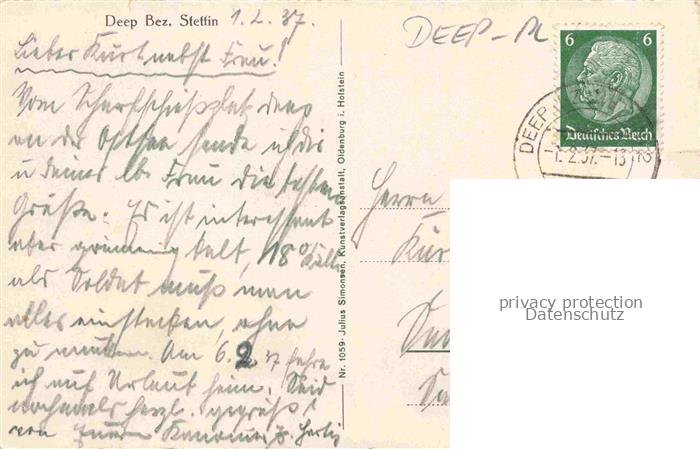 Deep Bez. Stettin 1.2.37.
DEEP-PL
Lieber Kurt nebst Frau!
Vom Scharfschießplatz Deep
an der Ostsee sende ich dir
u deiner lb. Frau die besten
Grüße. Es ist interessant
aber grimmig kalt, 18° Kälte
als Soldat muß man
alles einstecken, ohne
zu
Am 6.2.37 fahre
ich auf Urlaub heim. Seid
nochmals herzl. gegrüßt
von Eurem Kanonier
Nr. 1059 · Julius Simonsen, Kunstverlagsanstalt, Oldenburg i. Holstein
6 6
Deutsches Reich
DEEP
-1.2.37.-13
Herrn
privacy protection
Datenschutz